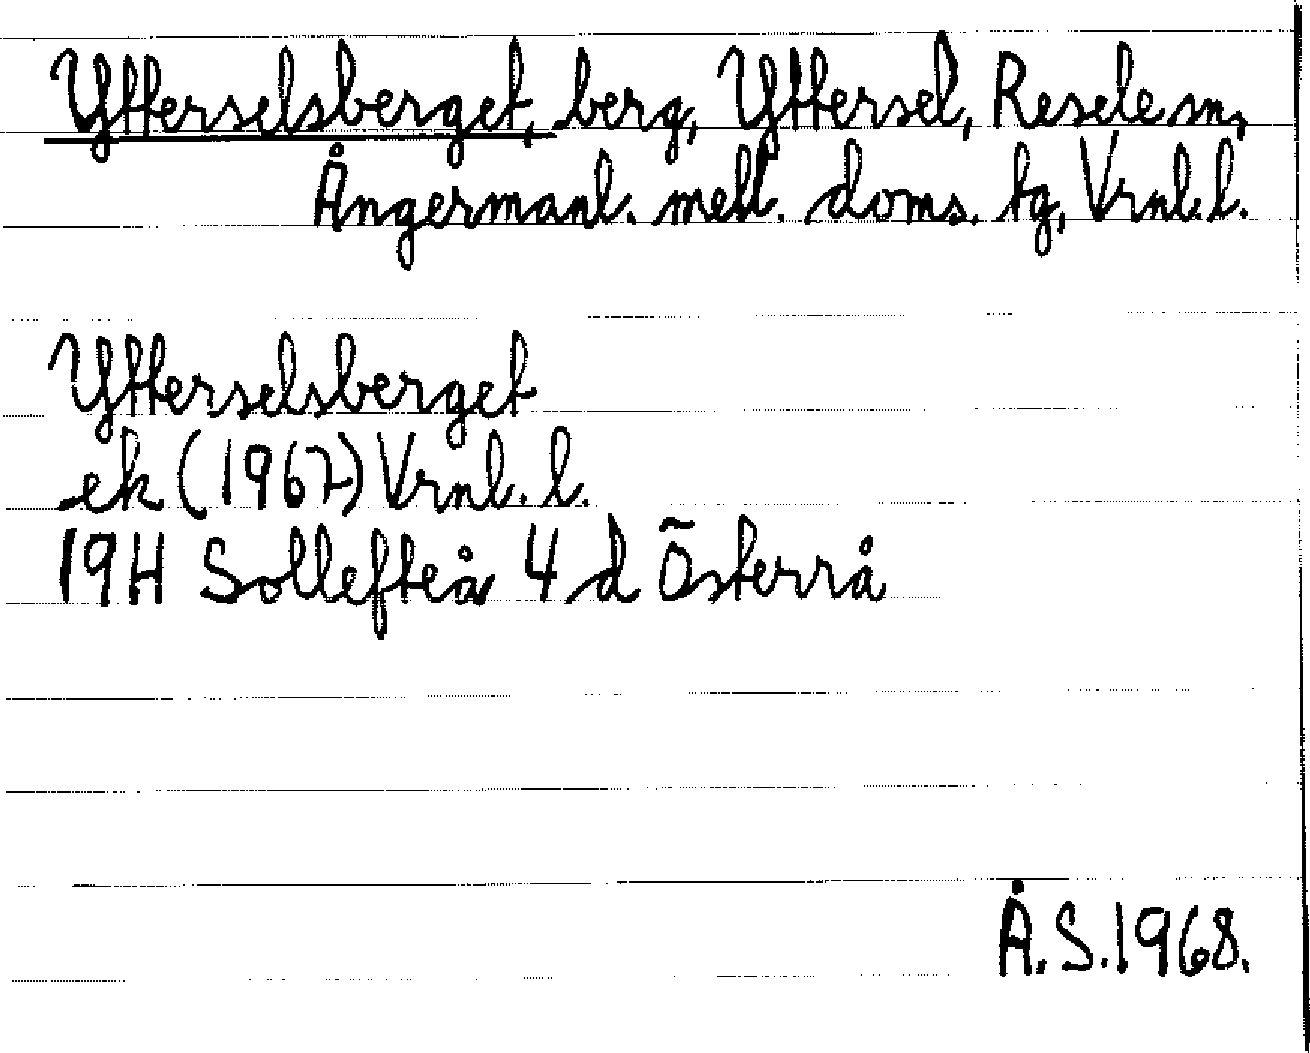 Ytterselsberget, berg, Yttersel, Resele sn,
Ångermanl. mell. doms. tg, Vrnl. l.
Ytterselsberget
ek (1967) Vrnl. l.
19H Sollefteå 4 d Österrå
Å.S.1968.